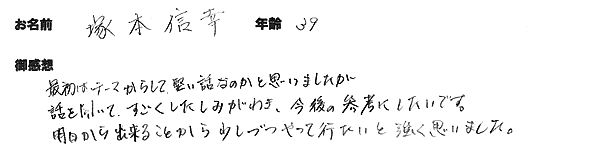 お名前 塚本信幸 年齢 39
御感想
最初はテーマからして、堅い話なのかと思いましたが
話をきいて、すごくしたしみがわき、今後の参考にしたいです。
明日から出来ることから少しづつやって行たいと強く思いました。